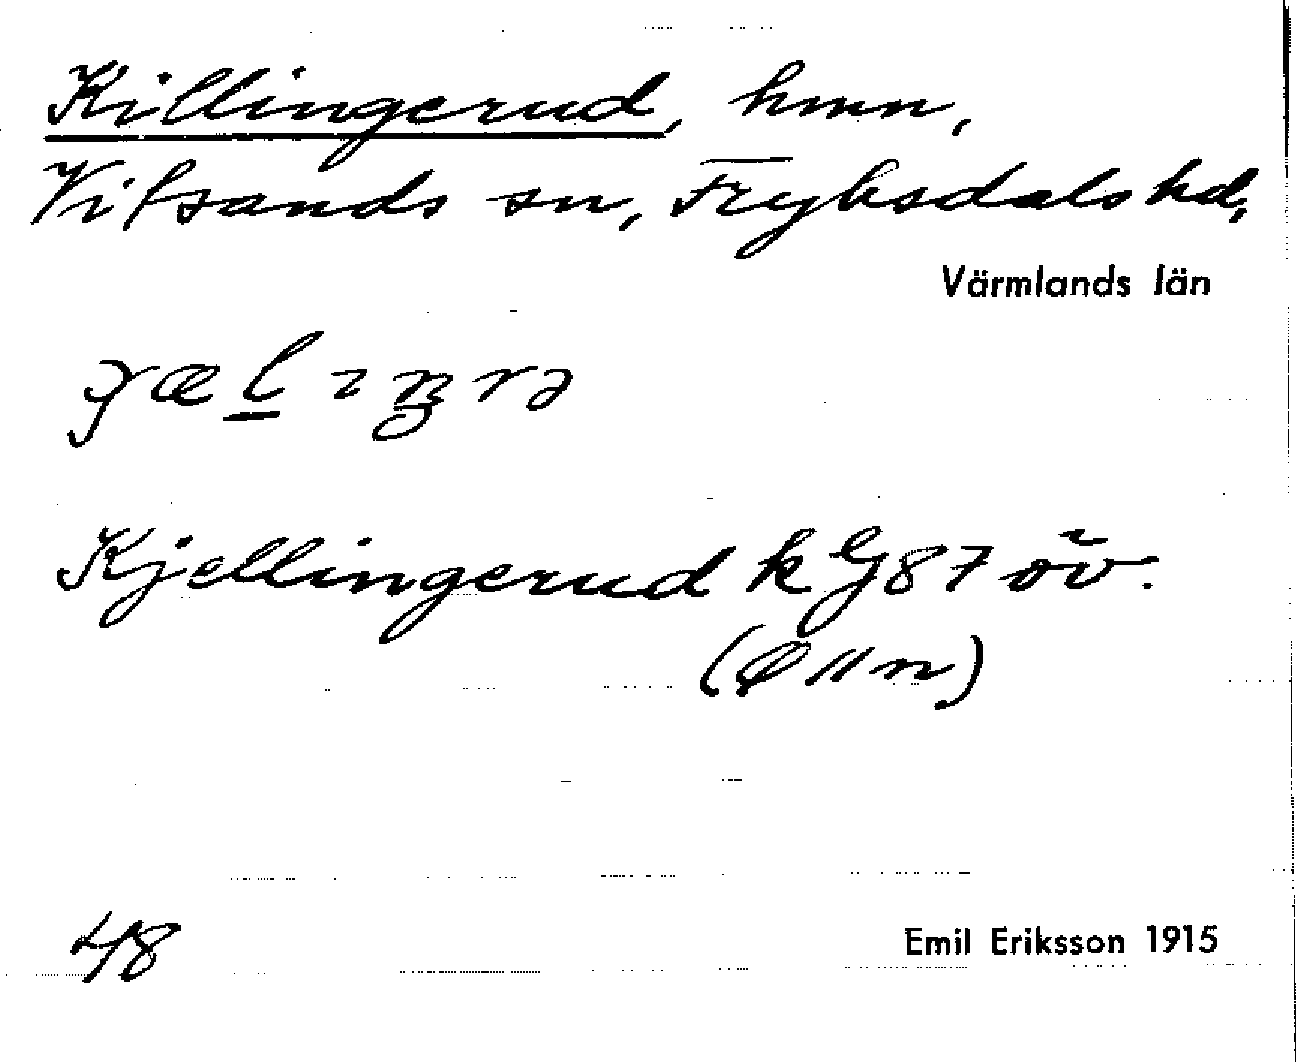 Killingerud, hmn,
Vitsands sn, Fryksdals hd,
Värmlands län
Kjellingerud k G87 öv.
(Ø II n)
48
Emil Eriksson 1915